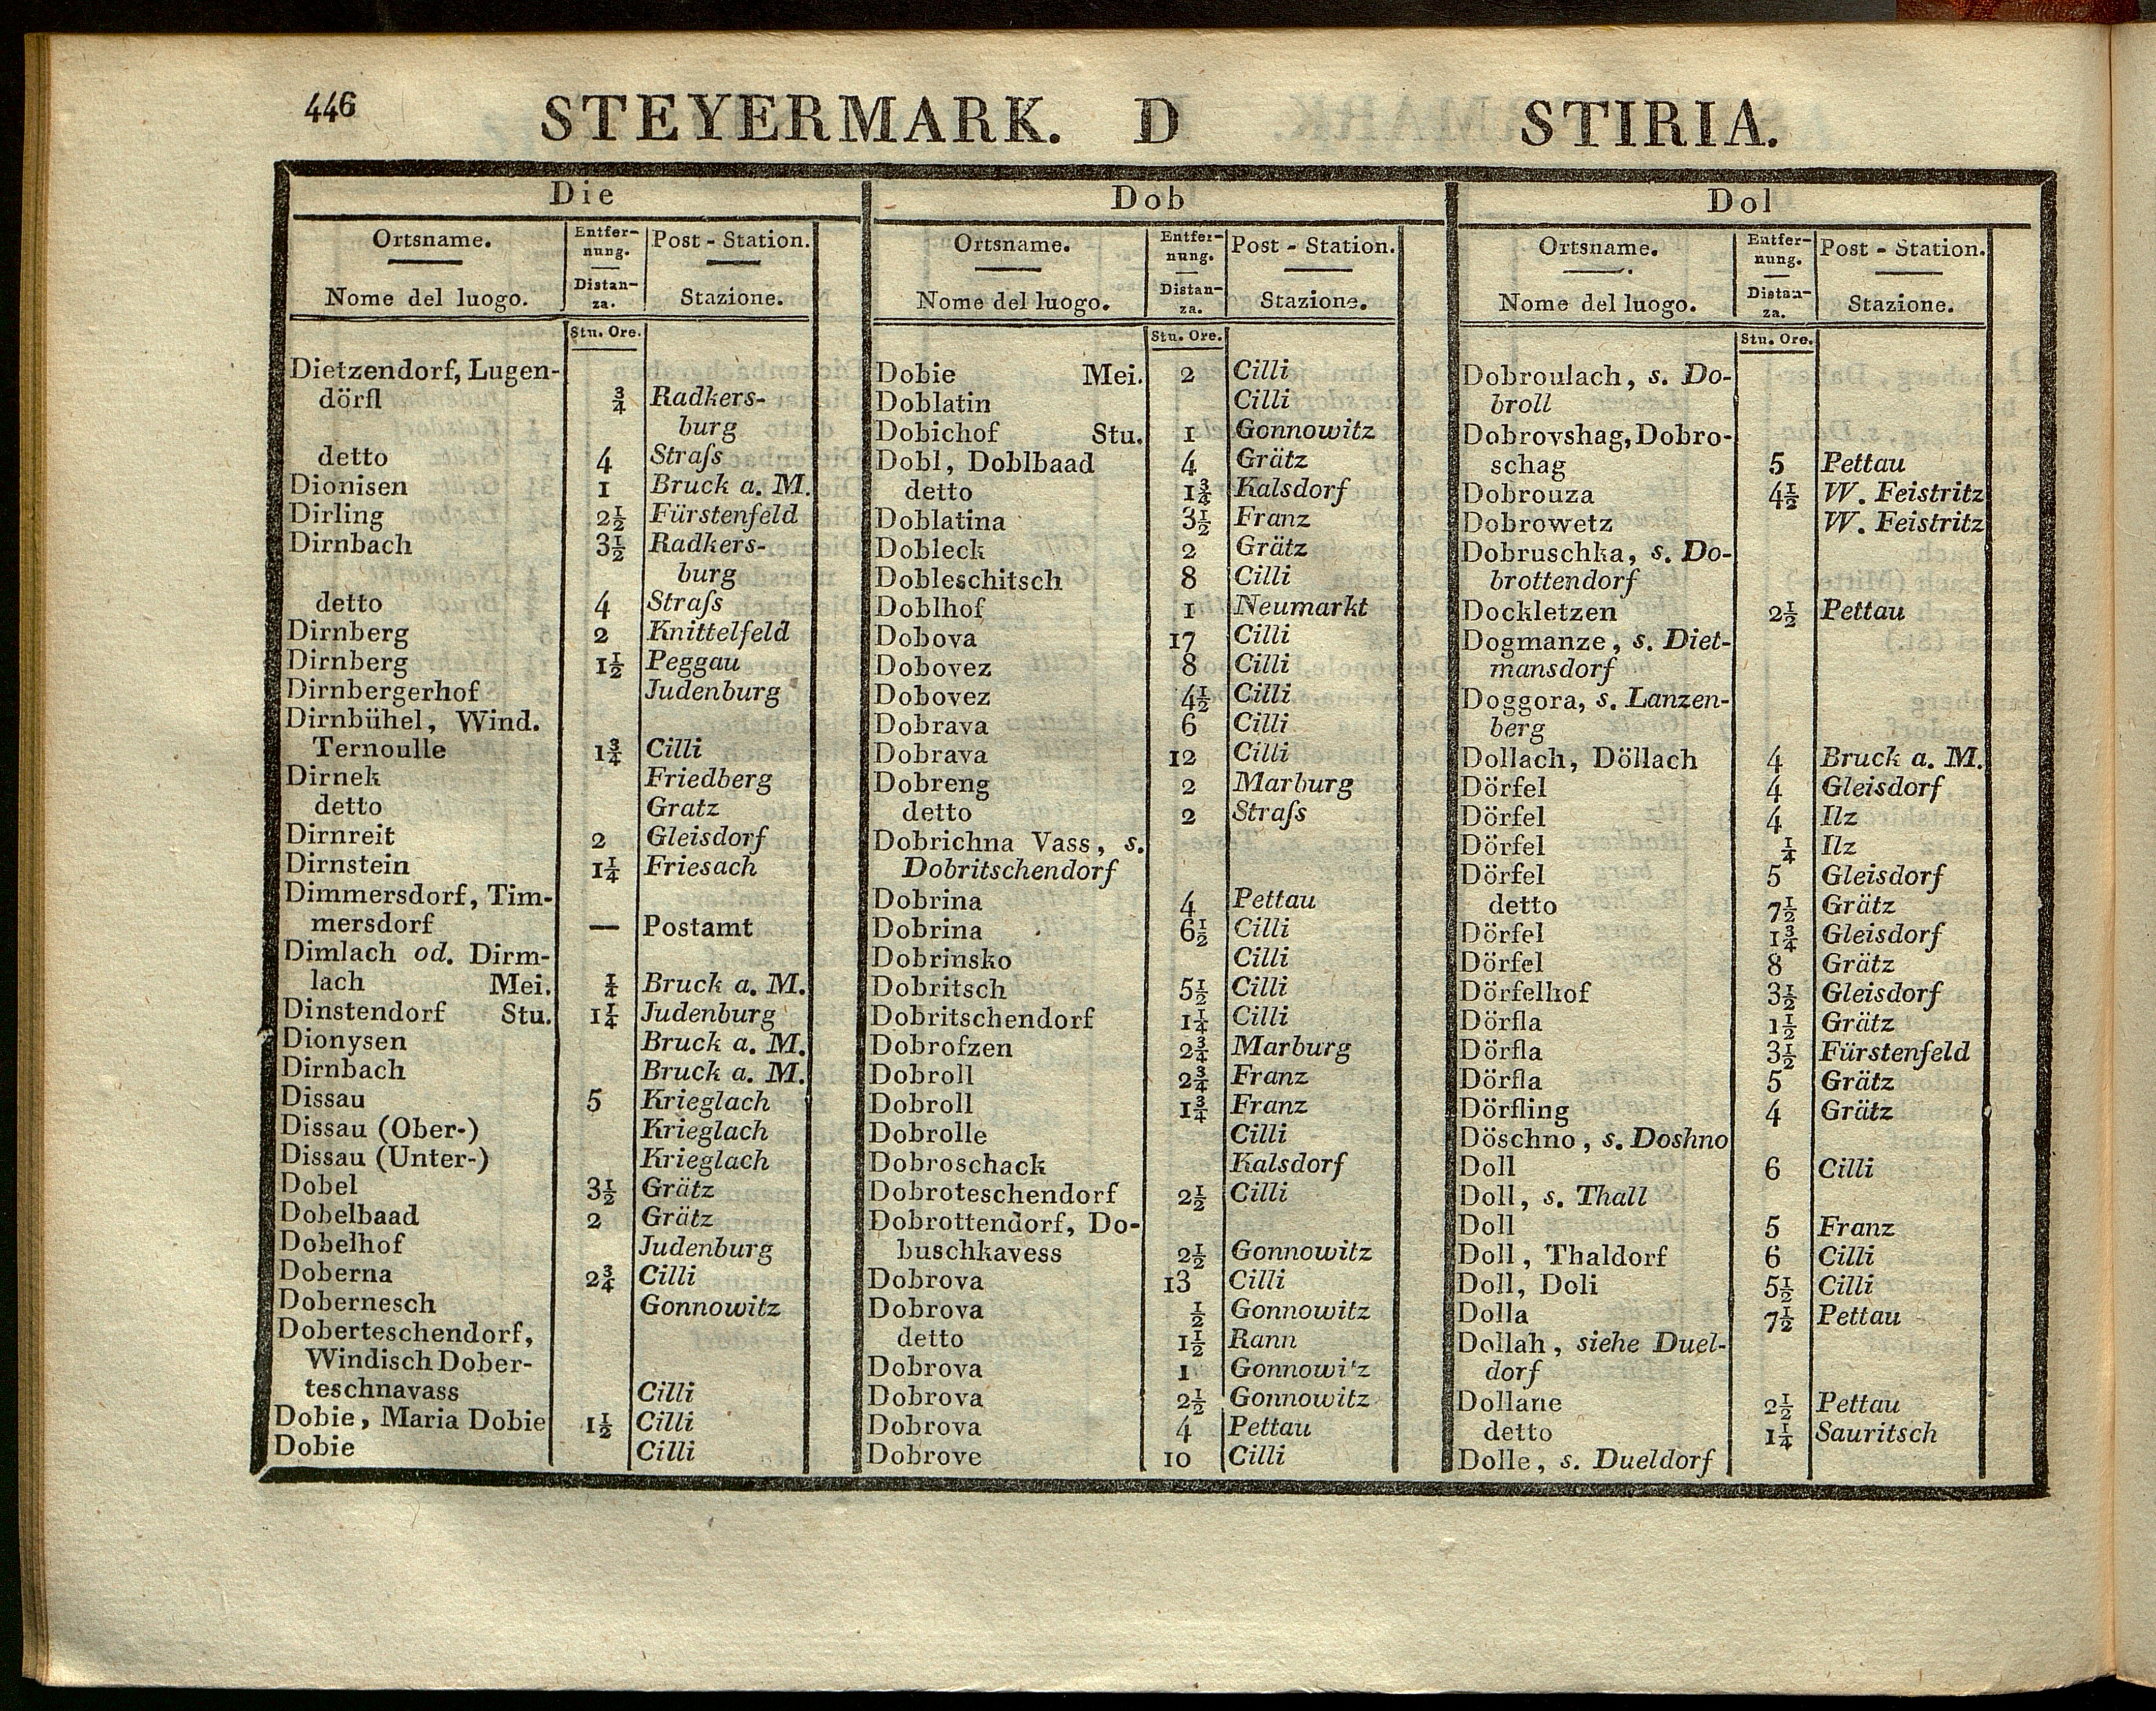 446
STEYERMARK. D STIRIA.
Die
Ortsname. Entfer- Post - Station.
nung.
Nome del luogo. Distan- Stazione.
za.
Stu. Ore.
Dietzendorf, Lugen-
dörfl ¾ Radkers-
burg
detto 4 Straſs
Dionisen 1 Bruck a. M.
Dirling 2½ Fürstenfeld
Dirnbach 3½ Radkers-
burg
detto 4 Straſs
Dirnberg 2 Knittelfeld
Dirnberg 1½ Peggau
Dirnbergerhof Judenburg
Dirnbühel, Wind.
Ternoulle 1¾ Cilli
Dirnek Friedberg
detto Gratz
Dirnreit 2 Gleisdorf
Dirnstein 1¼ Friesach
Dimmersdorf, Tim-
mersdorf — Postamt
Dimlach od. Dirm-
lach Mei. ¼ Bruck a. M.
Dinstendorf Stu. 1¼ Judenburg
Dionysen Bruck a. M.
Dirnbach Bruck a. M.
Dissau 5 Krieglach
Dissau (Ober-) Krieglach
Dissau (Unter-) Krieglach
Dobel 3½ Grätz
Dobelbaad 2 Grätz
Dobelhof Judenburg
Doberna 2¾ Cilli
Dobernesch Gonnowitz
Doberteschendorf,
Windisch Dober-
teschnavass Cilli
Dobie, Maria Dobie 1½ Cilli
Dobie Cilli
Dob
Ortsname. Entfer- Post - Station.
nung.
Nome del luogo. Distan- Stazione.
za.
Stu. Ore.
Dobie Mei. 2 Cilli
Doblatin Cilli
Dobichof Stu. 1 Gonnowitz
Dobl, Doblbaad 4 Grätz
detto 1¾ Kalsdorf
Doblatina 3½ Franz
Dobleck 2 Grätz
Dobleschitsch 8 Cilli
Doblhof 1 Neumarkt
Dobova 17 Cilli
Dobovez 8 Cilli
Dobovez 4½ Cilli
Dobrava 6 Cilli
Dobrava 12 Cilli
Dobreng 2 Marburg
detto 2 Straſs
Dobrichna Vass, s.
Dobritschendorf
Dobrina 4 Pettau
Dobrina 6½ Cilli
Dobrinsko Cilli
Dobritsch 5½ Cilli
Dobritschendorf 1¼ Cilli
Dobrofzen 2¾ Marburg
Dobroll 2¾ Franz
Dobroll 1¾ Franz
Dobrolle Cilli
Dobroschack Kalsdorf
Dobroteschendorf 2½ Cilli
Dobrottendorf, Do-
buschkavess 2½ Gonnowitz
Dobrova 13 Cilli
Dobrova ½ Gonnowitz
detto 1½ Rann
Dobrova 1 Gonnowitz
Dobrova 2½ Gonnowitz
Dobrova 4 Pettau
Dobrove 10 Cilli
Dol
Ortsname. Entfer- Post - Station.
nung.
Nome del luogo. Distan- Stazione.
za.
Stu. Ore.
Dobroulach, s. Do-
broll
Dobrovshag, Dobro-
schag 5 Pettau
Dobrouza 4½ W. Feistritz
Dobrowetz W. Feistritz
Dobruschka, s. Do-
brottendorf
Dockletzen 2½ Pettau
Dogmanze, s. Diet-
mansdorf
Doggora, s. Lanzen-
berg
Dollach, Döllach 4 Bruck a. M.
Dörfel 4 Gleisdorf
Dörfel 4 Ilz
Dörfel ¼ Ilz
Dörfel 5 Gleisdorf
detto 7½ Grätz
Dörfel 1¾ Gleisdorf
Dörfel 8 Grätz
Dörfelhof 3½ Gleisdorf
Dörfla 1½ Grätz
Dörfla 3½ Fürstenfeld
Dörfla 5 Grätz
Dörfling 4 Grätz
Döschno, s. Doshno
Doll 6 Cilli
Doll, s. Thall
Doll 5 Franz
Doll, Thaldorf 6 Cilli
Doll, Doli 5½ Cilli
Dolla 7½ Pettau
Dollah, siehe Duel-
dorf
Dollane 2½ Pettau
detto 1¼ Sauritsch
Dolle, s. Dueldorf